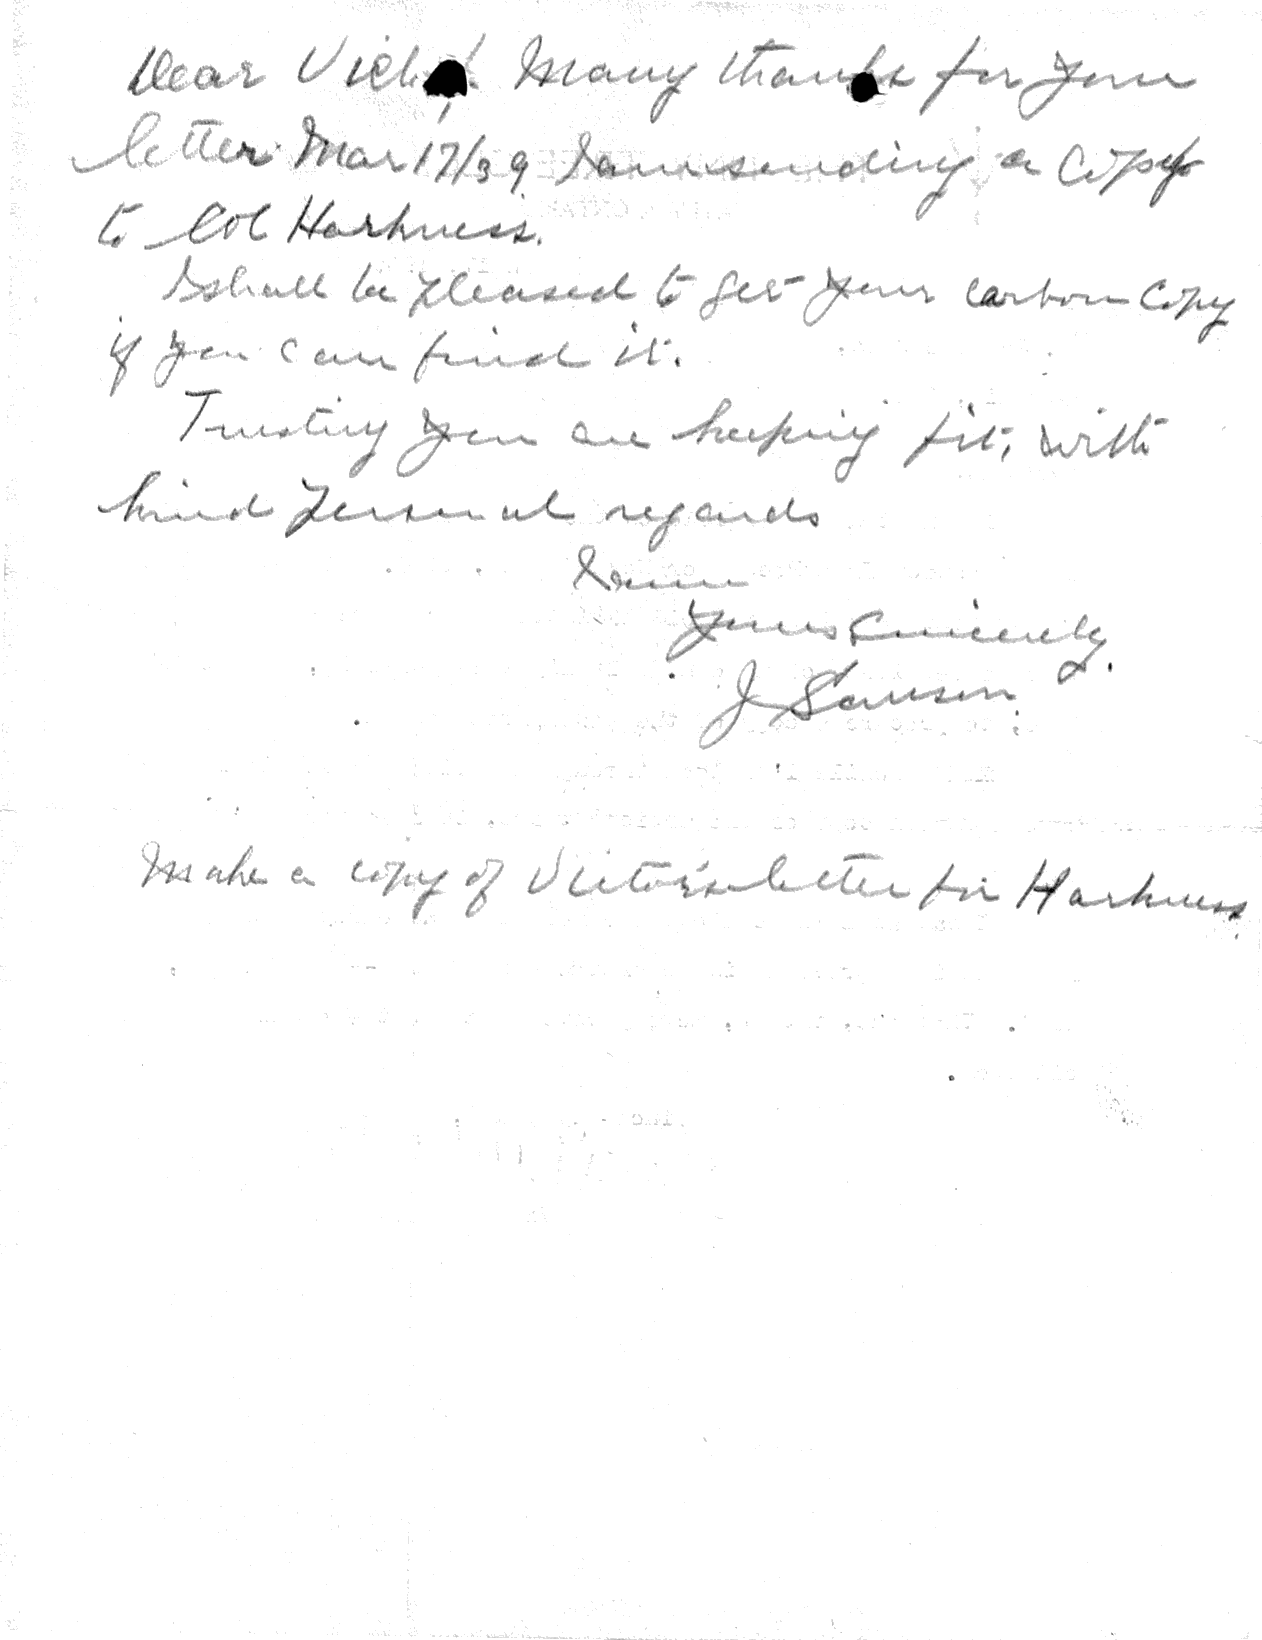 Dear Victor! Many thanks for your
letter Mar 17/39 I am sending a copy
to Col Harkness.
I shall be pleased to get your carbon copy
if you can find it.
Trusting you are keeping fit, with
kind personal regards
I am
Yours Sincerely,
J
Make a copy of Victor's letter for Harkness